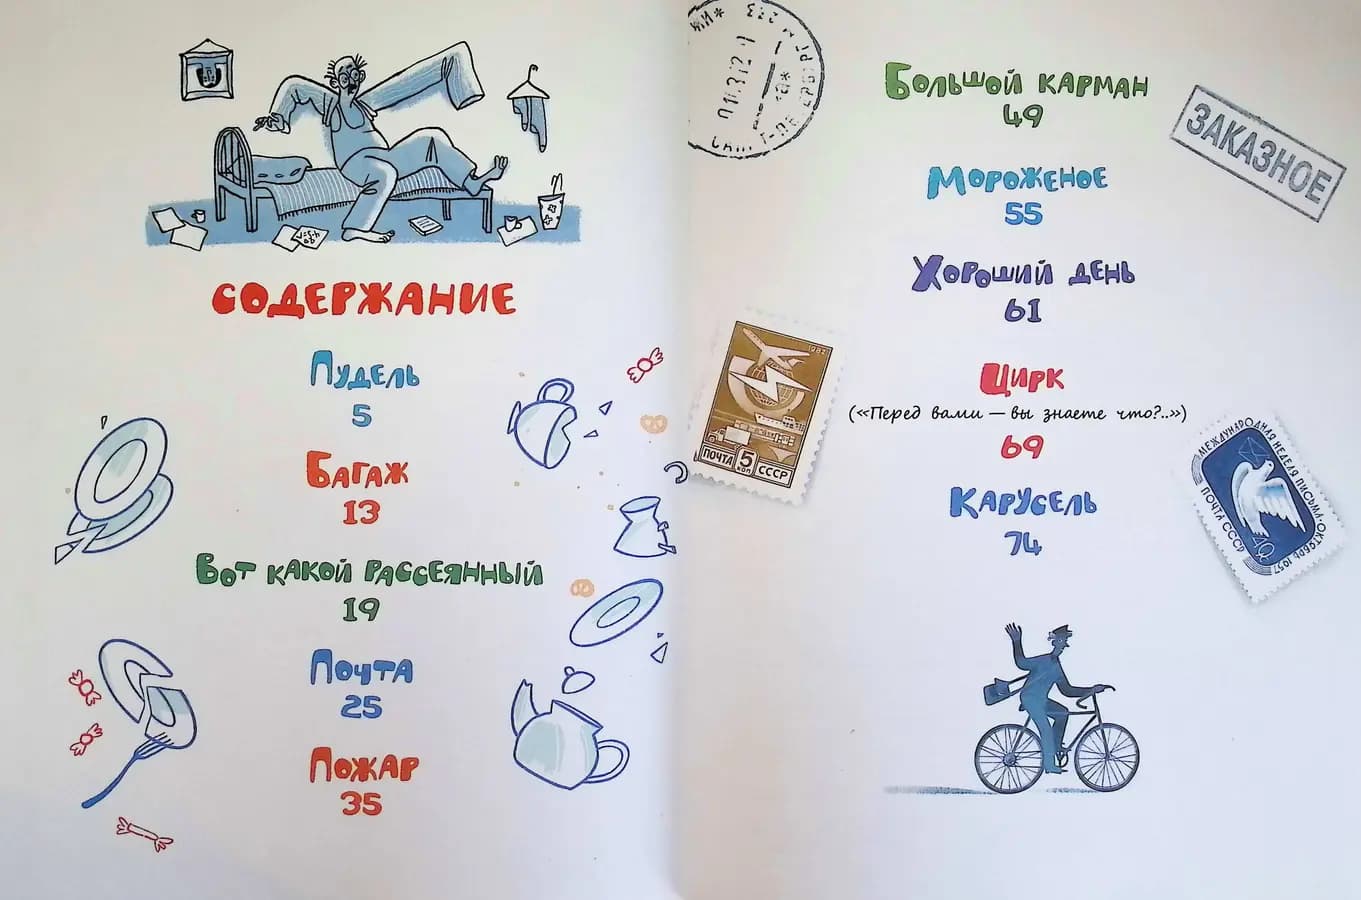 СОДЕРЖАНИЕ
Пудель
5
Багаж
13
Вот какой рассеянный
19
Почта
25
Пожар
35
Большой карман
49
Мороженое
55
Хороший день
61
Цирк
(«Перед вами — вы знаете что?..»)
69
Карусель
74
ЗАКАЗНОЕ
1982
ПОЧТА 5 КОП СССР
МЕЖДУНАРОДНАЯ НЕДЕЛЯ ПИСЬМА · ОКТЯБРЬ 1957
ПОЧТА СССР
40